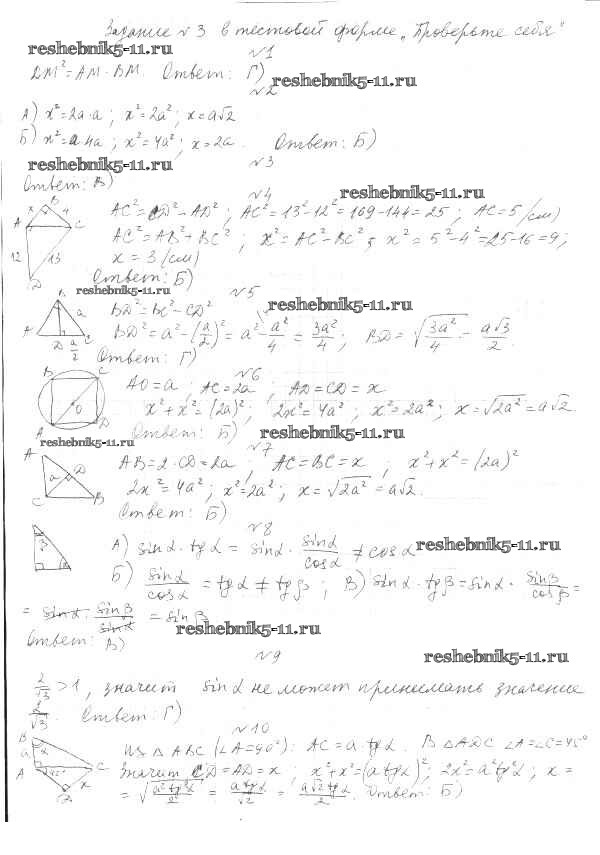 Задание №3 в тестовой форме „Проверьте себя"
№1
reshebnik5-11.ru
DM² = AM · BM. Ответ: Г)
reshebnik5-11.ru
№2
А) x² = 2a · a ; x² = 2a² ; x = a√2
Б) x² = a · 4a ; x² = 4a² ; x = 2a. Ответ: Б)
reshebnik5-11.ru
№3
Ответ: В)
№4
reshebnik5-11.ru
B
x 4
A C
12 13
D
AC² = CD² - AD² ; AC² = 13² - 12² = 169 - 144 = 25 ; AC = 5 (см)
AC² = AB² + BC² ; x² = AC² - BC² ; x² = 5² - 4² = 25 - 16 = 9 ;
x = 3 (см)
Ответ: Б)
reshebnik5-11.ru
№5
reshebnik5-11.ru
B
a
A D C
a/2
BD² = BC² - CD²
BD² = a² - (a/2)² = a² - a²/4 = 3a²/4 ; BD = √(3a²/4) = a√3/2.
Ответ: Г)
№6
B C
O
A D
AO = a ; AC = 2a ; AD = CD = x
x² + x² = (2a)² ; 2x² = 4a² ; x² = 2a² ; x = √2a² = a√2.
Ответ: Б)
reshebnik5-11.ru
reshebnik5-11.ru
№7
A
D
a
C B
AB = 2 · CD = 2a ; AC = BC = x , x² + x² = (2a)²
2x² = 4a² ; x² = 2a² ; x = √2a² = a√2.
Ответ: Б)
№8
β
α
А) sinα · tgα = sinα · sinα/cosα ≠ cosα
reshebnik5-11.ru
Б) sinα/cosα = tgα ≠ tgβ ; В) sinα · tgβ = sinα · sinβ/cosβ =
= sinα · sinβ/sinα = sinβ
reshebnik5-11.ru
Ответ: В)
№9
reshebnik5-11.ru
2/√3 > 1 , значит sinα не может принимать значение
2/√3. Ответ: Г)
№10
B
a α
A C
45°
x
D
Из △ABC (∠A = 90°): AC = a · tgα. В △ADC ∠A = ∠C = 45°
Значит CD = AD = x ; x² + x² = (a tgα)² ; 2x² = a² tg²α ; x =
= √(a² tg²α/2) = a tgα/√2 = a√2 tgα/2. Ответ: Б)